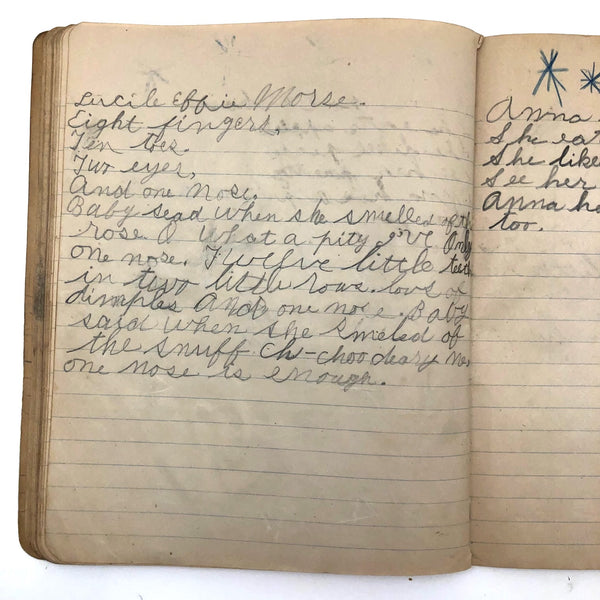 Lucile Effie Morse.
Eight fingers,
Ten toes.
Two eyes,
And one nose.
Baby sead when she smelled of the
rose O what a pity I've Only
one nose. Twelve little teeth
in two little rows. lovs of
dimples And one nose. Baby
said when she smeled of
the snuff Ch-choo deary me,
one nose is enough.
Anna
She eat
She like
See her
Anna ha
too.